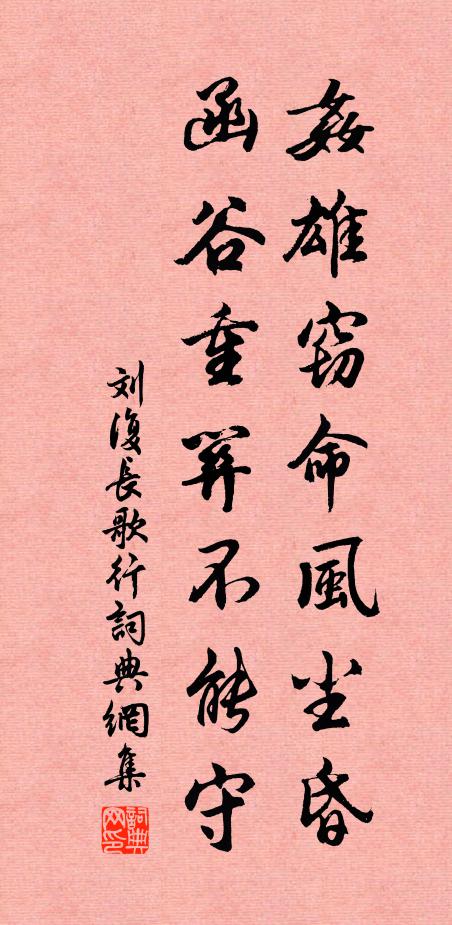 姦雄窃命風尘昏
函谷重关不能守
刘復長歌行詞典網集
詞典网印